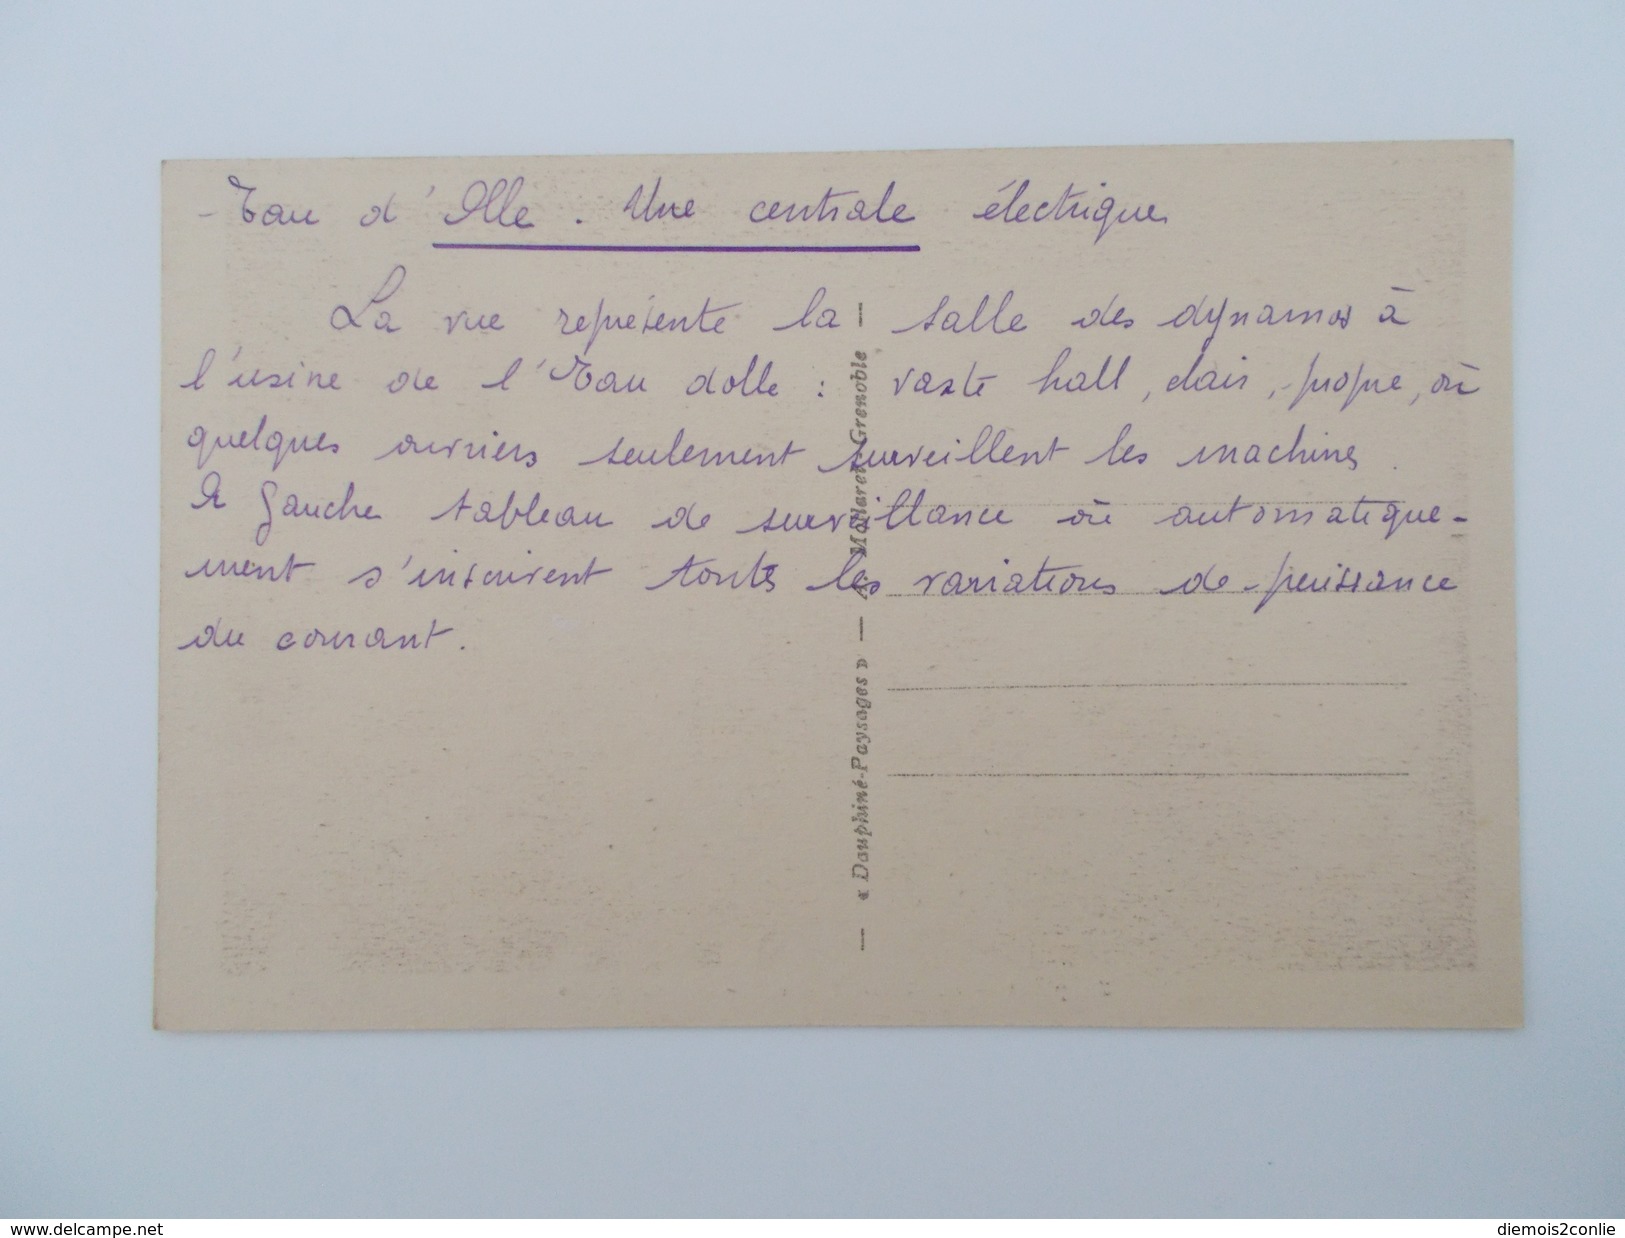 - Eau d'Olle. Une centrale électrique
La vue représente la salle des dynamos à
l'usine de l'Eau dolle : vaste hall, clair, propre, où
quelques ouvriers seulement surveillent les machines.
A gauche tableau de surveillance où automatique-
ment s'inscrivent toutes les variations de puissance
du courant.
— « Dauphiné-Paysages » — A. Mollaret, Grenoble —
www.delcampe.net
diemois2conlie